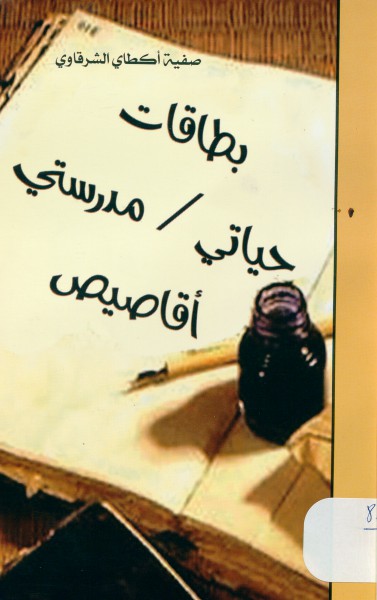 صفية أكطاي الشرقاوي
بطاقات
حياتي / مدرستي
أقاصيص